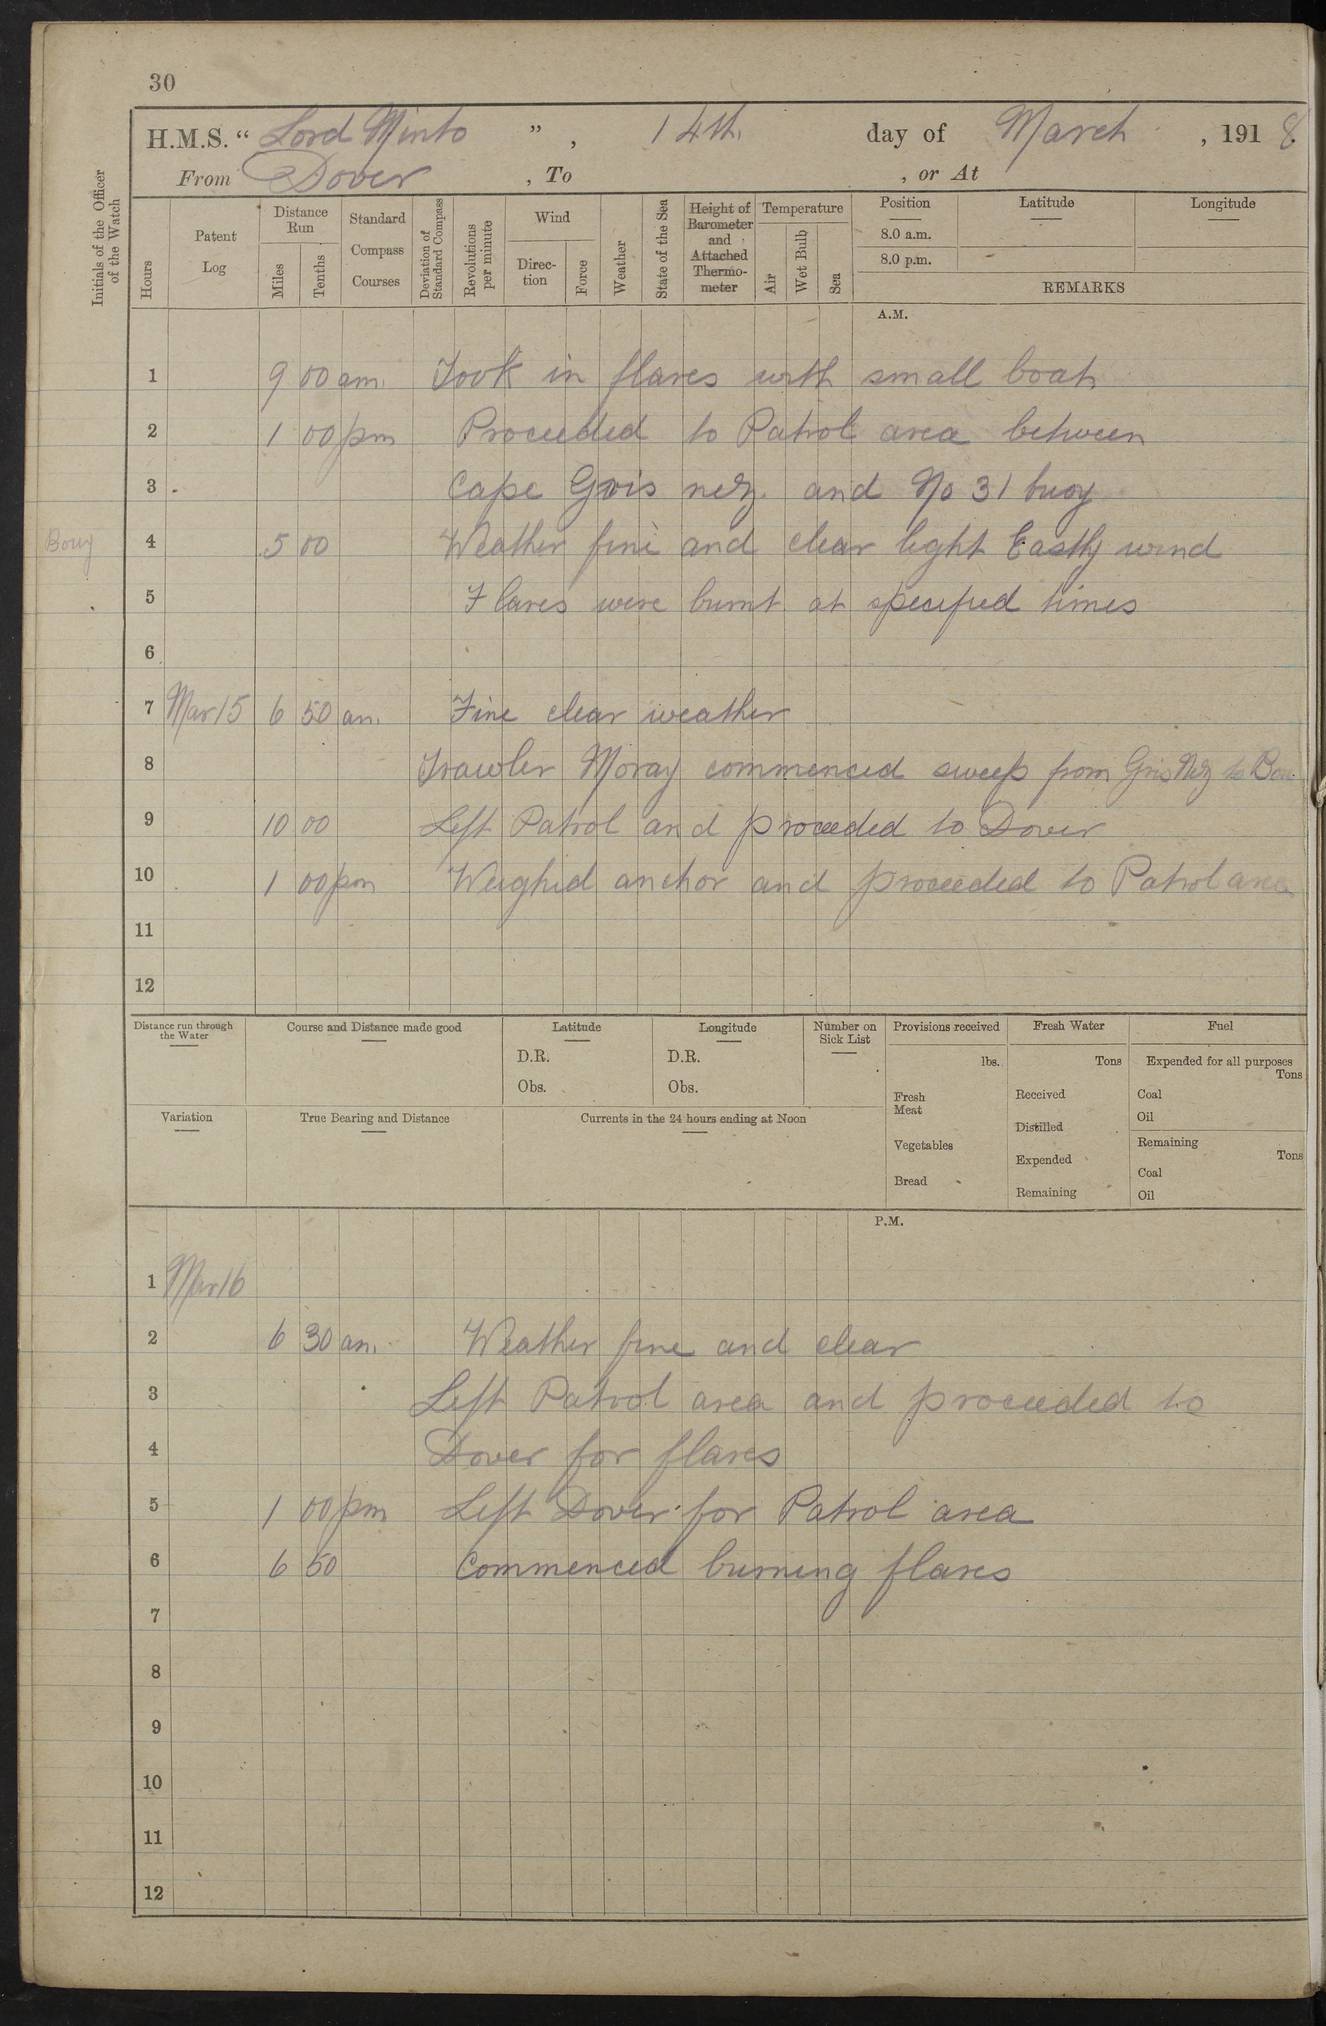 30
H.M.S. “ Lord Minto ” , 14th. day of March , 1918.
From Dover , To , or At
Initials of the Officer of the Watch
Hours
Patent Log
Distance Run
Miles
Tenths
Standard Compass Courses
Deviation of Standard Compass
Revolutions per minute
Wind
Direction
Force
Weather
State of the Sea
Height of Barometer and Attached Thermometer
Temperature
Air
Wet Bulb
Sea
Position
8.0 a.m.
8.0 p.m.
Latitude
Longitude
REMARKS
A.M.
1 9 00 am. Took in flares with small boat
2 1 00 pm Proceeded to Patrol area between
3 Cape Gris nez. and No 31 buoy
Bouy 4 5 00 Weather fine and clear light Eastly wind
5 Flares were burnt at specified times
6
7 Mar 15 6 50 am. Fine clear weather
8 Trawler Moray commenced sweep from Gris Nez to
9 10 00 Left Patrol and proceeded to Dover
10 1 00 pm Weighed anchor and proceeded to Patrol area
11
12
Distance run through the Water
Course and Distance made good
Latitude
D.R.
Obs.
Longitude
D.R.
Obs.
Number on Sick List
Provisions received
lbs.
Fresh Meat
Vegetables
Bread
Fresh Water
Tons
Received
Distilled
Expended
Remaining
Fuel
Expended for all purposes
Tons
Coal
Oil
Remaining
Tons
Coal
Oil
Variation
True Bearing and Distance
Currents in the 24 hours ending at Noon
P.M.
1 Mar 16
2 6 30 am. Weather fine and clear
3 Left Patrol area and proceeded to
4 Dover for flares
5 1 00 pm Left Dover for Patrol area
6 6 50 Commenced burning flares
7
8
9
10
11
12